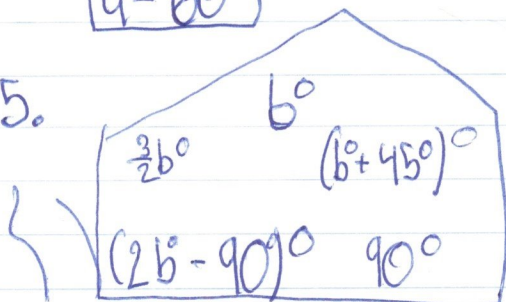 a = 60
5.
b°
3/2 b° (b° + 45°)°
(2b° - 90)° 90°